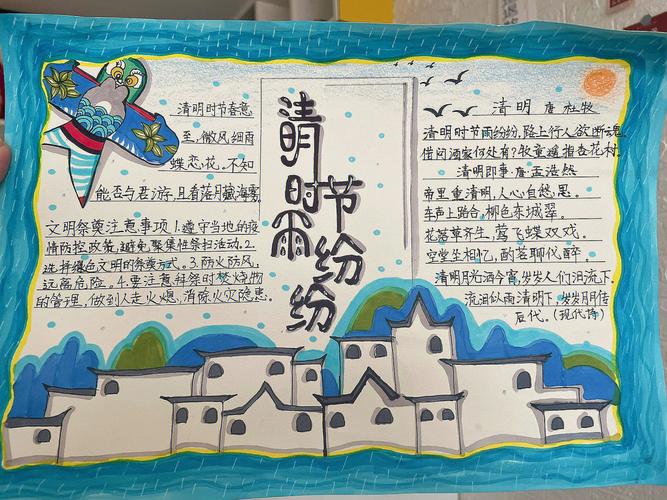 清明时节雨纷纷
清明时节春意
至,微风细雨
蝶恋花。不知
能否与君游,且看落月藏海雾
文明祭奠注意事项1.遵守当地的疫
情防控政策,避免聚集性祭扫活动。2.
选择绿色文明的祭奠方式。3.防火防风,
远离危险。4.要注意拜祭时焚烧物
的管理,做到人走火熄,消除火灾隐患。
清明 唐 杜牧
清明时节雨纷纷,路上行人欲断魂。
借问酒家何处有?牧童遥指杏花村。
清明即事·唐·孟浩然
帝里重清明,人心自愁思。
车声上路合,柳色东城翠。
花落草齐生,莺飞蝶双戏。
空堂坐相忆,酌茗聊代醉
清明月光洒今宵,岁岁人们泪流下。
流泪似雨清明下,岁岁月月传
后代。(现代诗)